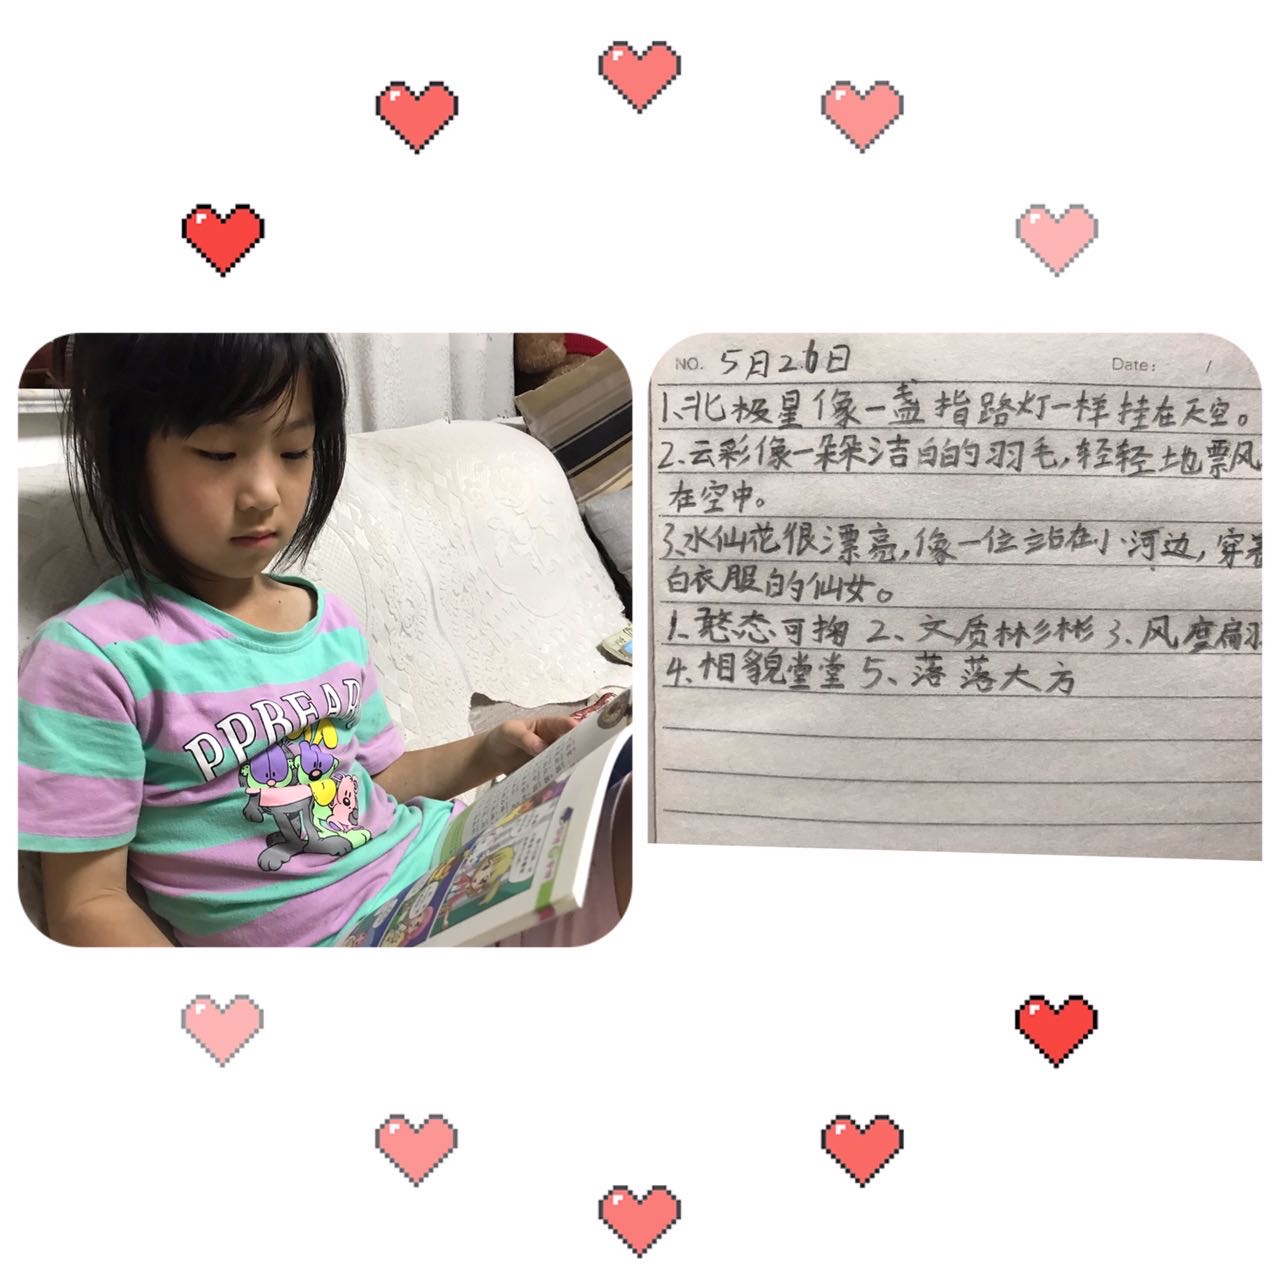 PPBEAR
NO. 5月26日 Date: /
1、北极星像一盏指路灯一样挂在天空。
2、云彩像一朵朵洁白的羽毛,轻轻地飘
在空中。
3、水仙花很漂亮,像一位站在小河边,穿着
白衣服的仙女。
1、憨态可掬 2、文质彬彬 3、风度扁羽
4、相貌堂堂 5、落落大方